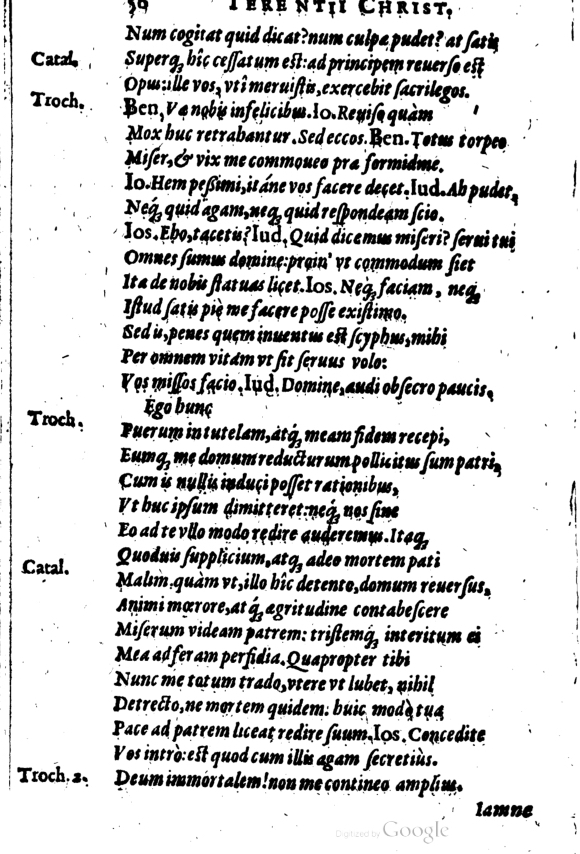 50 TERENTII CHRIST.
Num cogitat quid dicat? num culpa pudet? at ſatis
Catal. Superq́; hîc ceſſatum eſt: ad principem reuerſo eſt
Opus: ille vos, vti meruiſtis, exercebit ſacrilegos.
Troch. Ben. Væ nobis infelicibus. Io. Reuiſo quàm
Mox huc retrabantur. Sed eccos. Ben. Totus torpeo
Miſer, & vix me commoueo præ formidine.
Io. Hem peßimi, itáne vos facere decet. Iud. Ah pudet,
Neq́; quid agam, neq; quid reſpondeam ſcio.
Ios. Eho, tacetis? Iud. Quid dicemus miſeri? ſerui tui
Omnes ſumus domine: proin' vt commodum ſiet
Ita de nobis ſtatuas licet. Ios. Neq́; faciam, neq;
Iſtud ſatis piè me facere poſſe exiſtimo.
Sed is, penes quem inuentus eſt ſcyphus, mihi
Per omnem vitam vt ſit ſeruus volo:
Vos miſſos facio. Iud. Domine, audi obſecro paucis.
Ego hunc
Troch. Puerum in tutelam, atq́; meam fidem recepi,
Eumq́; me domum reducturum pollicitus ſum patri,
Cum is nullis induci poſſet rationibus,
Vt huc ipſum dimitteret: neq́; nos ſine
Eo ad te vllo modo redire auderemus. Itaq;
Quoduis ſupplicium, atq; adeo mortem pati
Catal. Malim. quàm vt, illo hîc detento, domum reuerſus,
Animi mœrore, atq́; ægritudine contabeſcere
Miſerum videam patrem: triſtemq́; interitum ei
Mea adferam perfidia. Quapropter tibi
Nunc me totum trado, vtere vt lubet, nihil
Detrecto, ne mortem quidem: huic modò tua
Pace ad patrem liceat redire ſuum. Ios. Concedite
Vos intrò: eſt quod cum illis agam ſecretiùs.
Troch. 2. Deum immortalem! non me contineo ampliùs.
Iamne
Digitized by Google